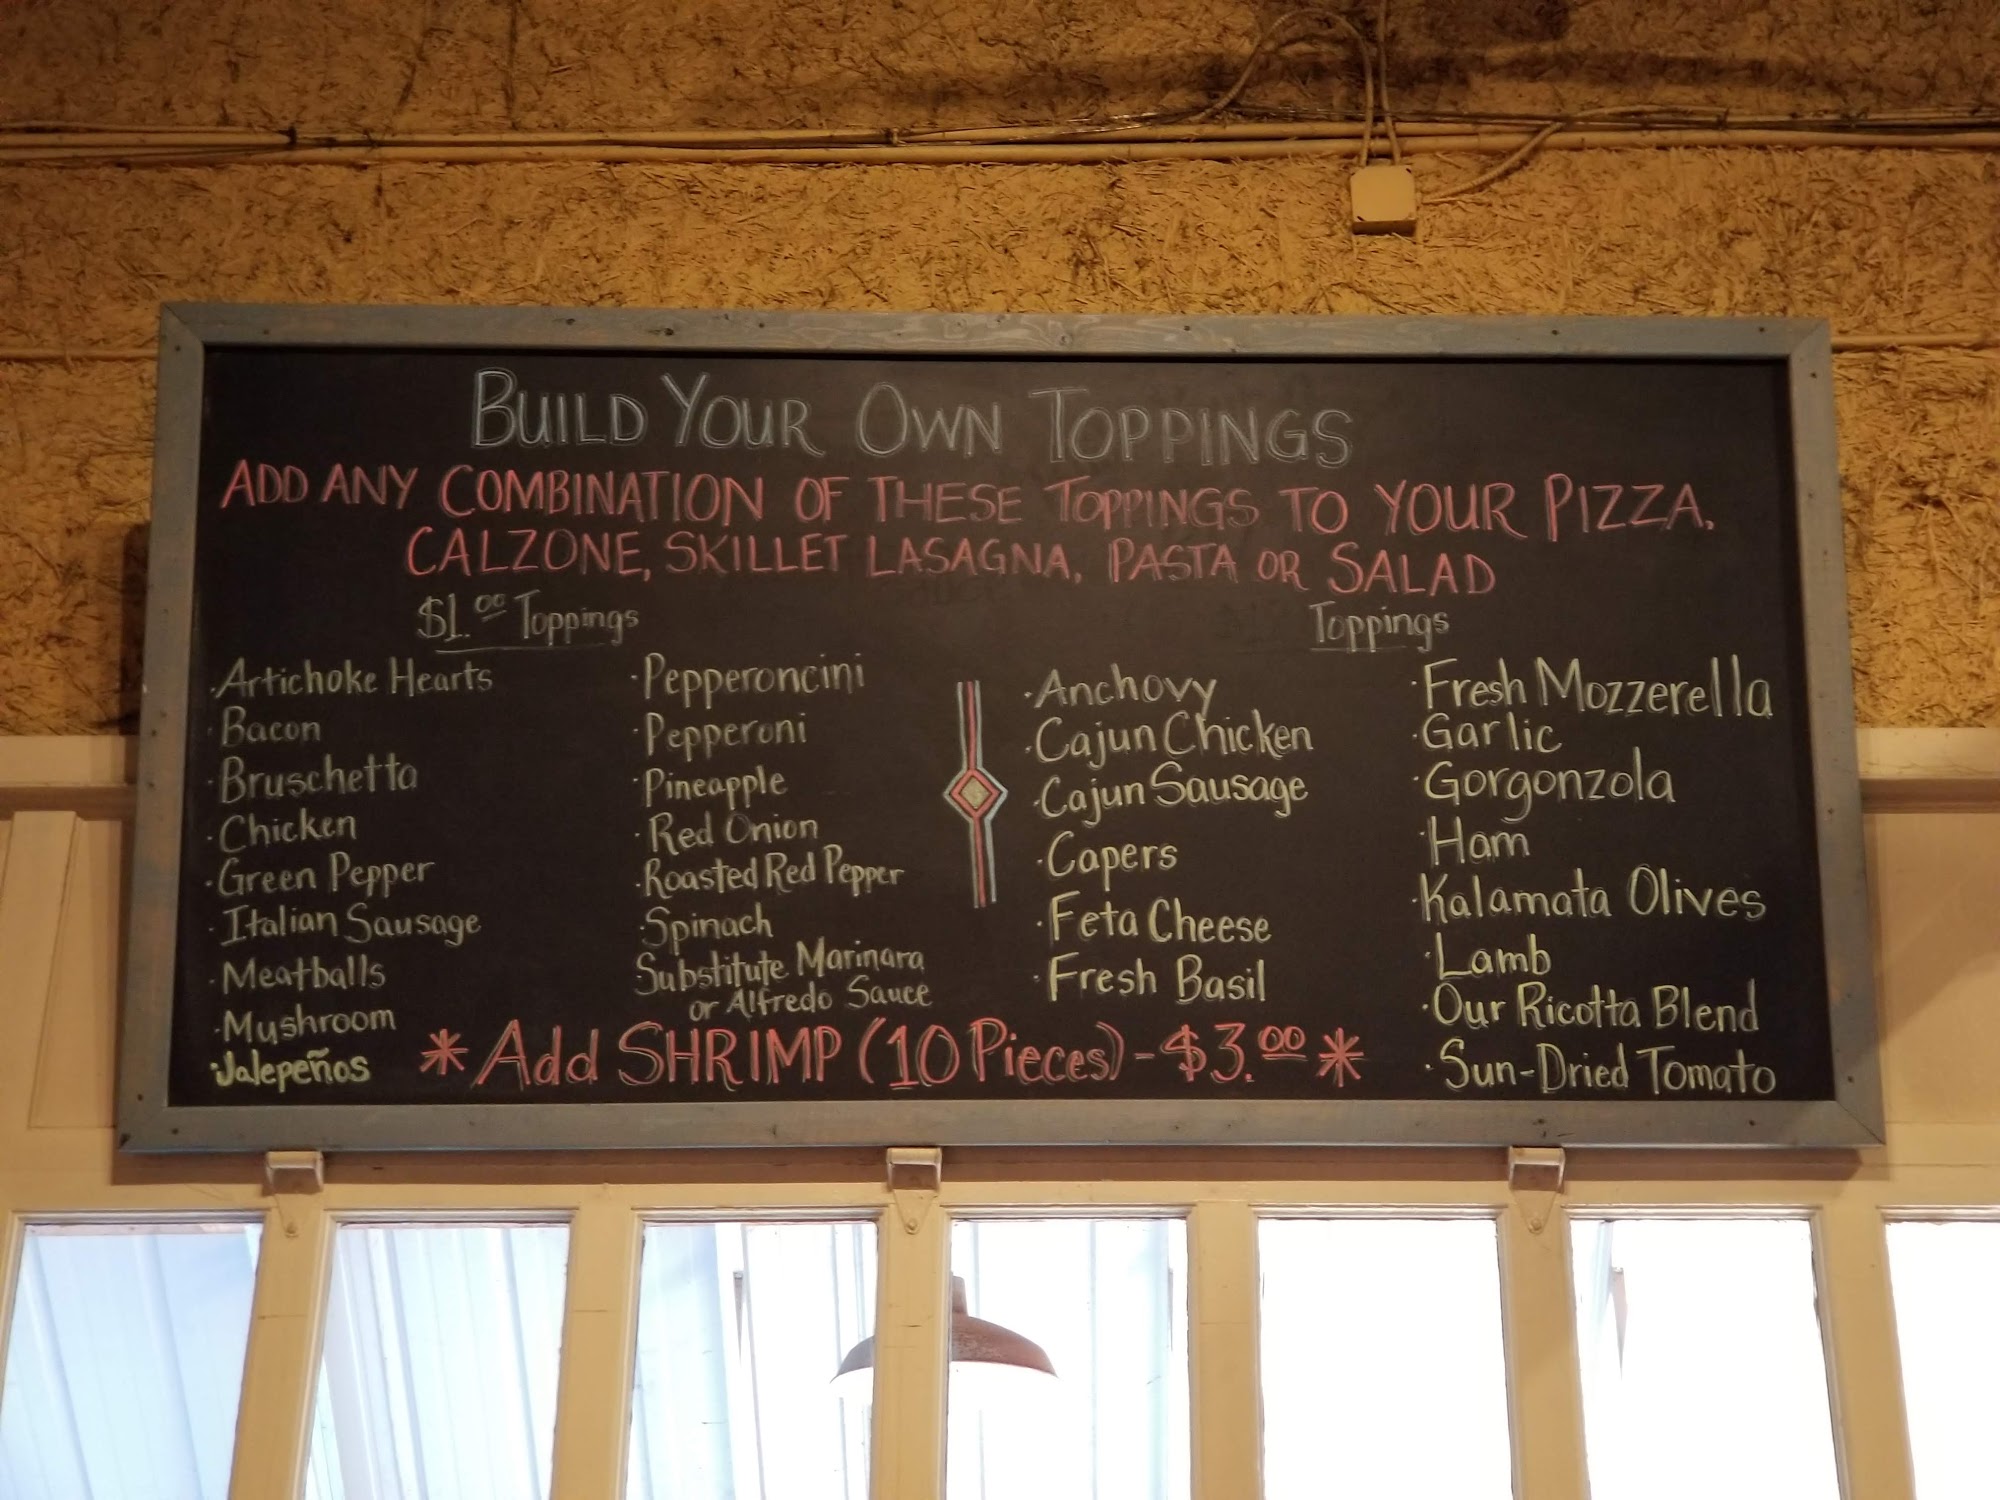 BUILD YOUR OWN TOPPINGS
ADD ANY COMBINATION OF THESE TOPPINGS TO YOUR PIZZA,
CALZONE, SKILLET LASAGNA, PASTA OR SALAD
$1.00 Toppings
·Artichoke Hearts
·Bacon
·Bruschetta
·Chicken
·Green Pepper
·Italian Sausage
·Meatballs
·Mushroom
·Jalepeños
·Pepperoncini
·Pepperoni
·Pineapple
·Red Onion
·Roasted Red Pepper
·Spinach
·Substitute Marinara
or Alfredo Sauce
Toppings
·Anchovy
·Cajun Chicken
·Cajun Sausage
·Capers
·Feta Cheese
·Fresh Basil
·Fresh Mozzerella
·Garlic
·Gorgonzola
·Ham
·Kalamata Olives
·Lamb
·Our Ricotta Blend
·Sun-Dried Tomato
*Add SHRIMP (10 Pieces) - $3.00*